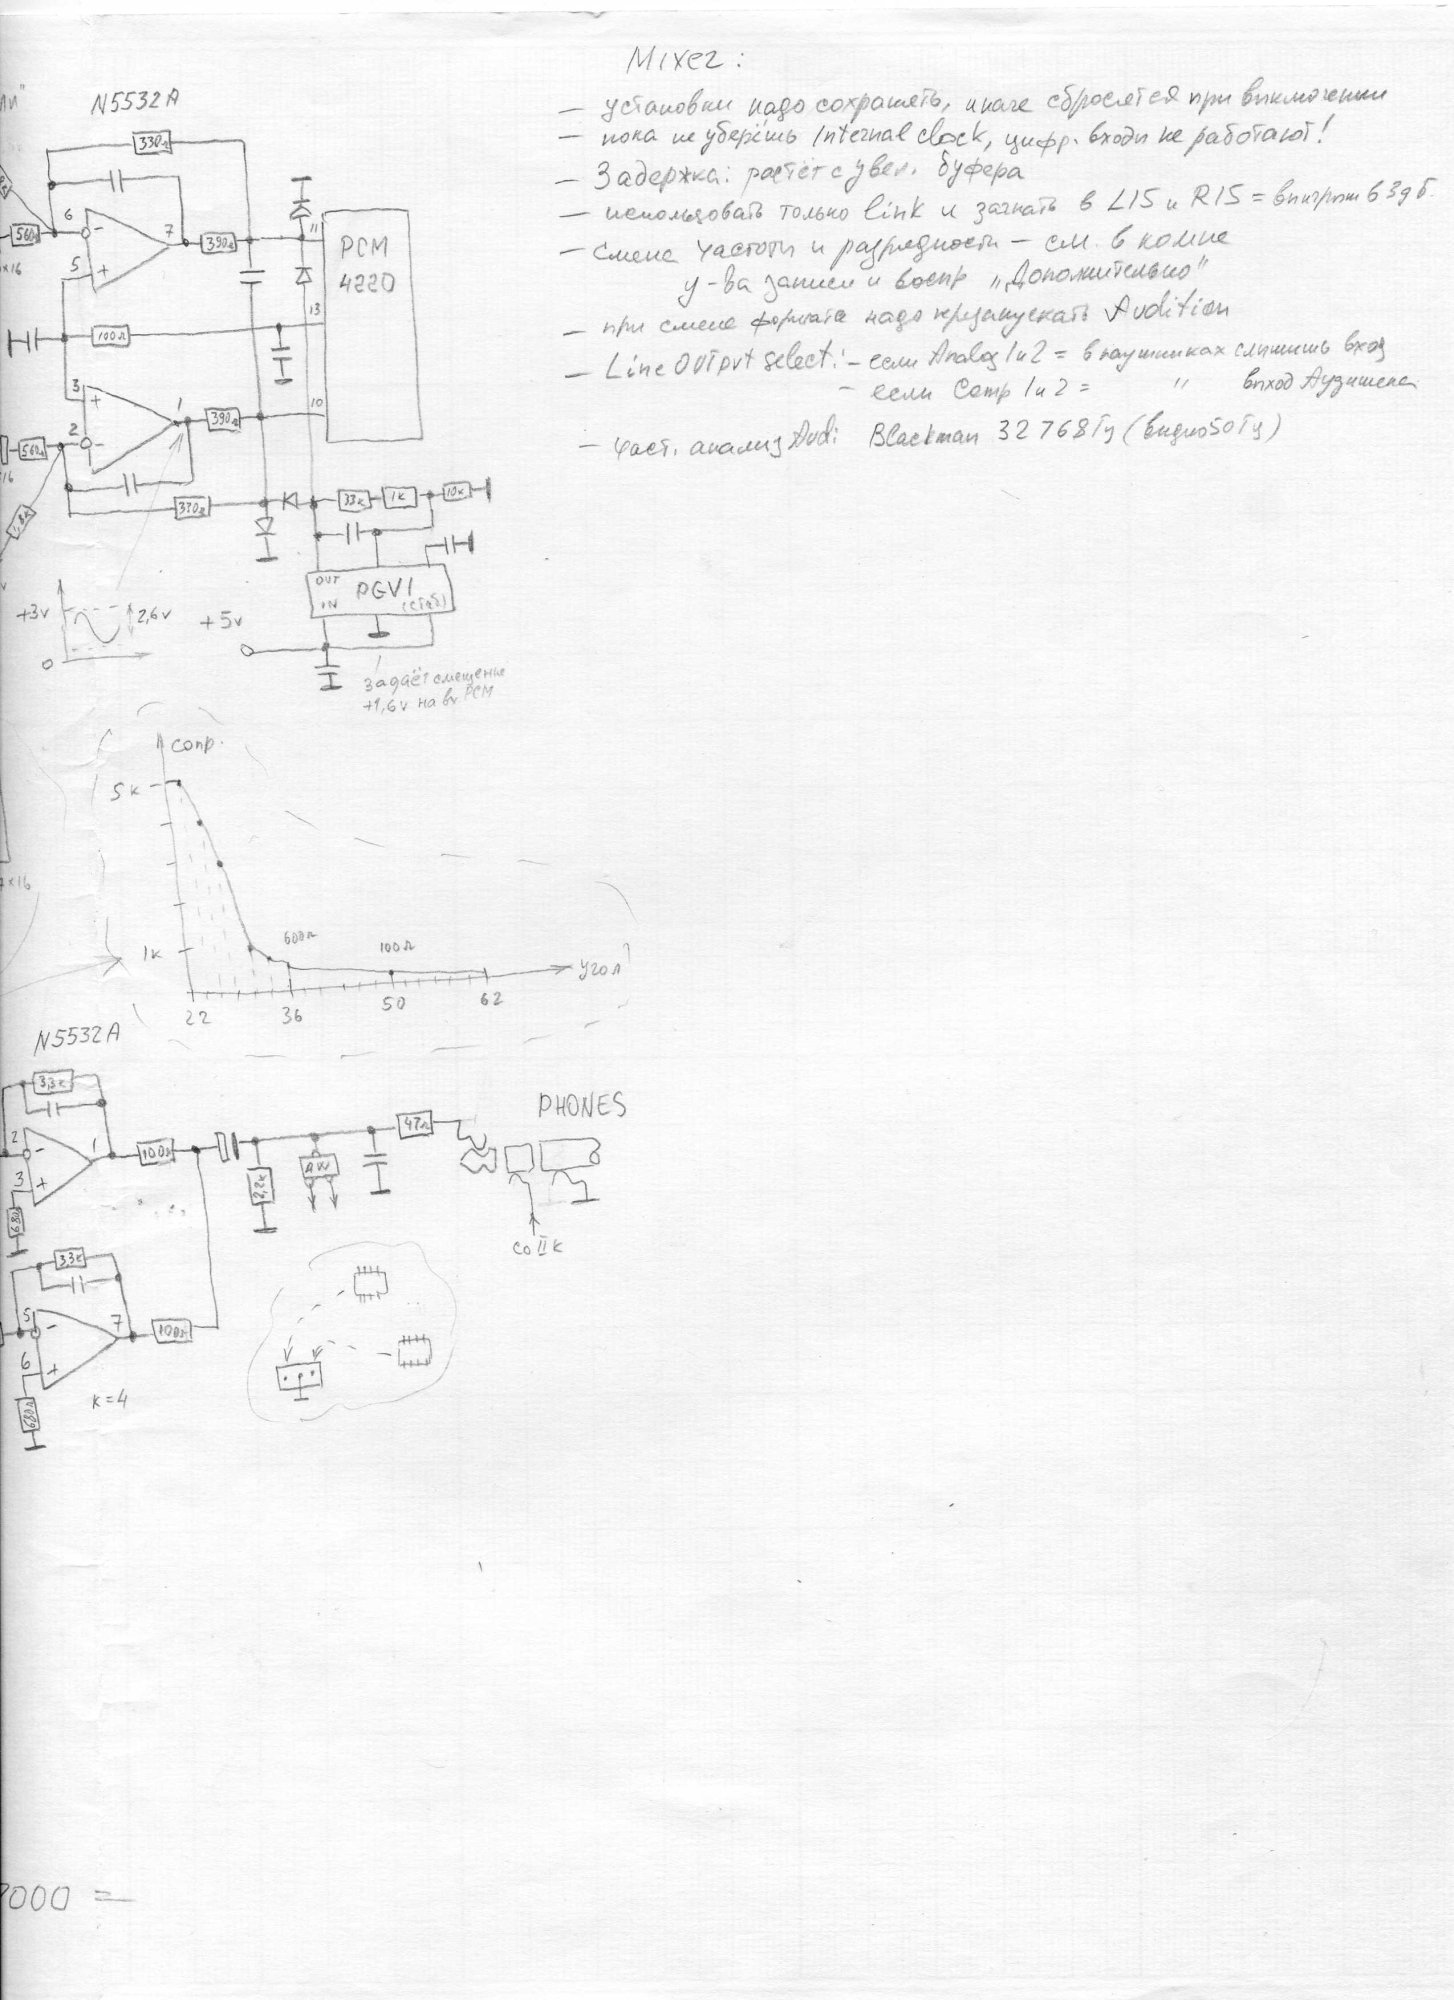 Mixer:
— установки надо сохранять, иначе сбросятся при выключении
— пока не уберёшь Internal clock, цифр. входы не работают!
— Задержка: растёт с увел. буфера
— использовать только link и загнать в L15 и R15 = выигрыш в 3дб.
— смена частоты и разрядности — см. в компе
у-ва записи и воспр „Дополнительно"
— при смене формата надо презапускать Audition
— Line OUTput select: — если Analog 1и2 = в наушниках слышишь вход
— если Comp 1и2 = " выход Аудишена
— Част. анализ Audi Blackman 32768 Гц (видно 50 Гц)
ли"
N5532A
330Ω
6
7
560Ω
390Ω
11
PCM
4220
×16
5
13
100Ω
3
1
10
390Ω
2
560Ω
16
330Ω
33к
1к
10к
1,8к
OUT
IN
PGVI
(стаб)
+3v
2,6v
0
+5v
задаёт смещение
+1,6v на вх PCM
сопр.
5к
×16
1к
600Ω
100Ω
угол
22
36
50
62
N5532A
3,3к
2
1
100Ω
3
680
2,2к
47Ω
PHONES
со II к
3,3к
5
7
100Ω
6
680Ω
к=4
000 =